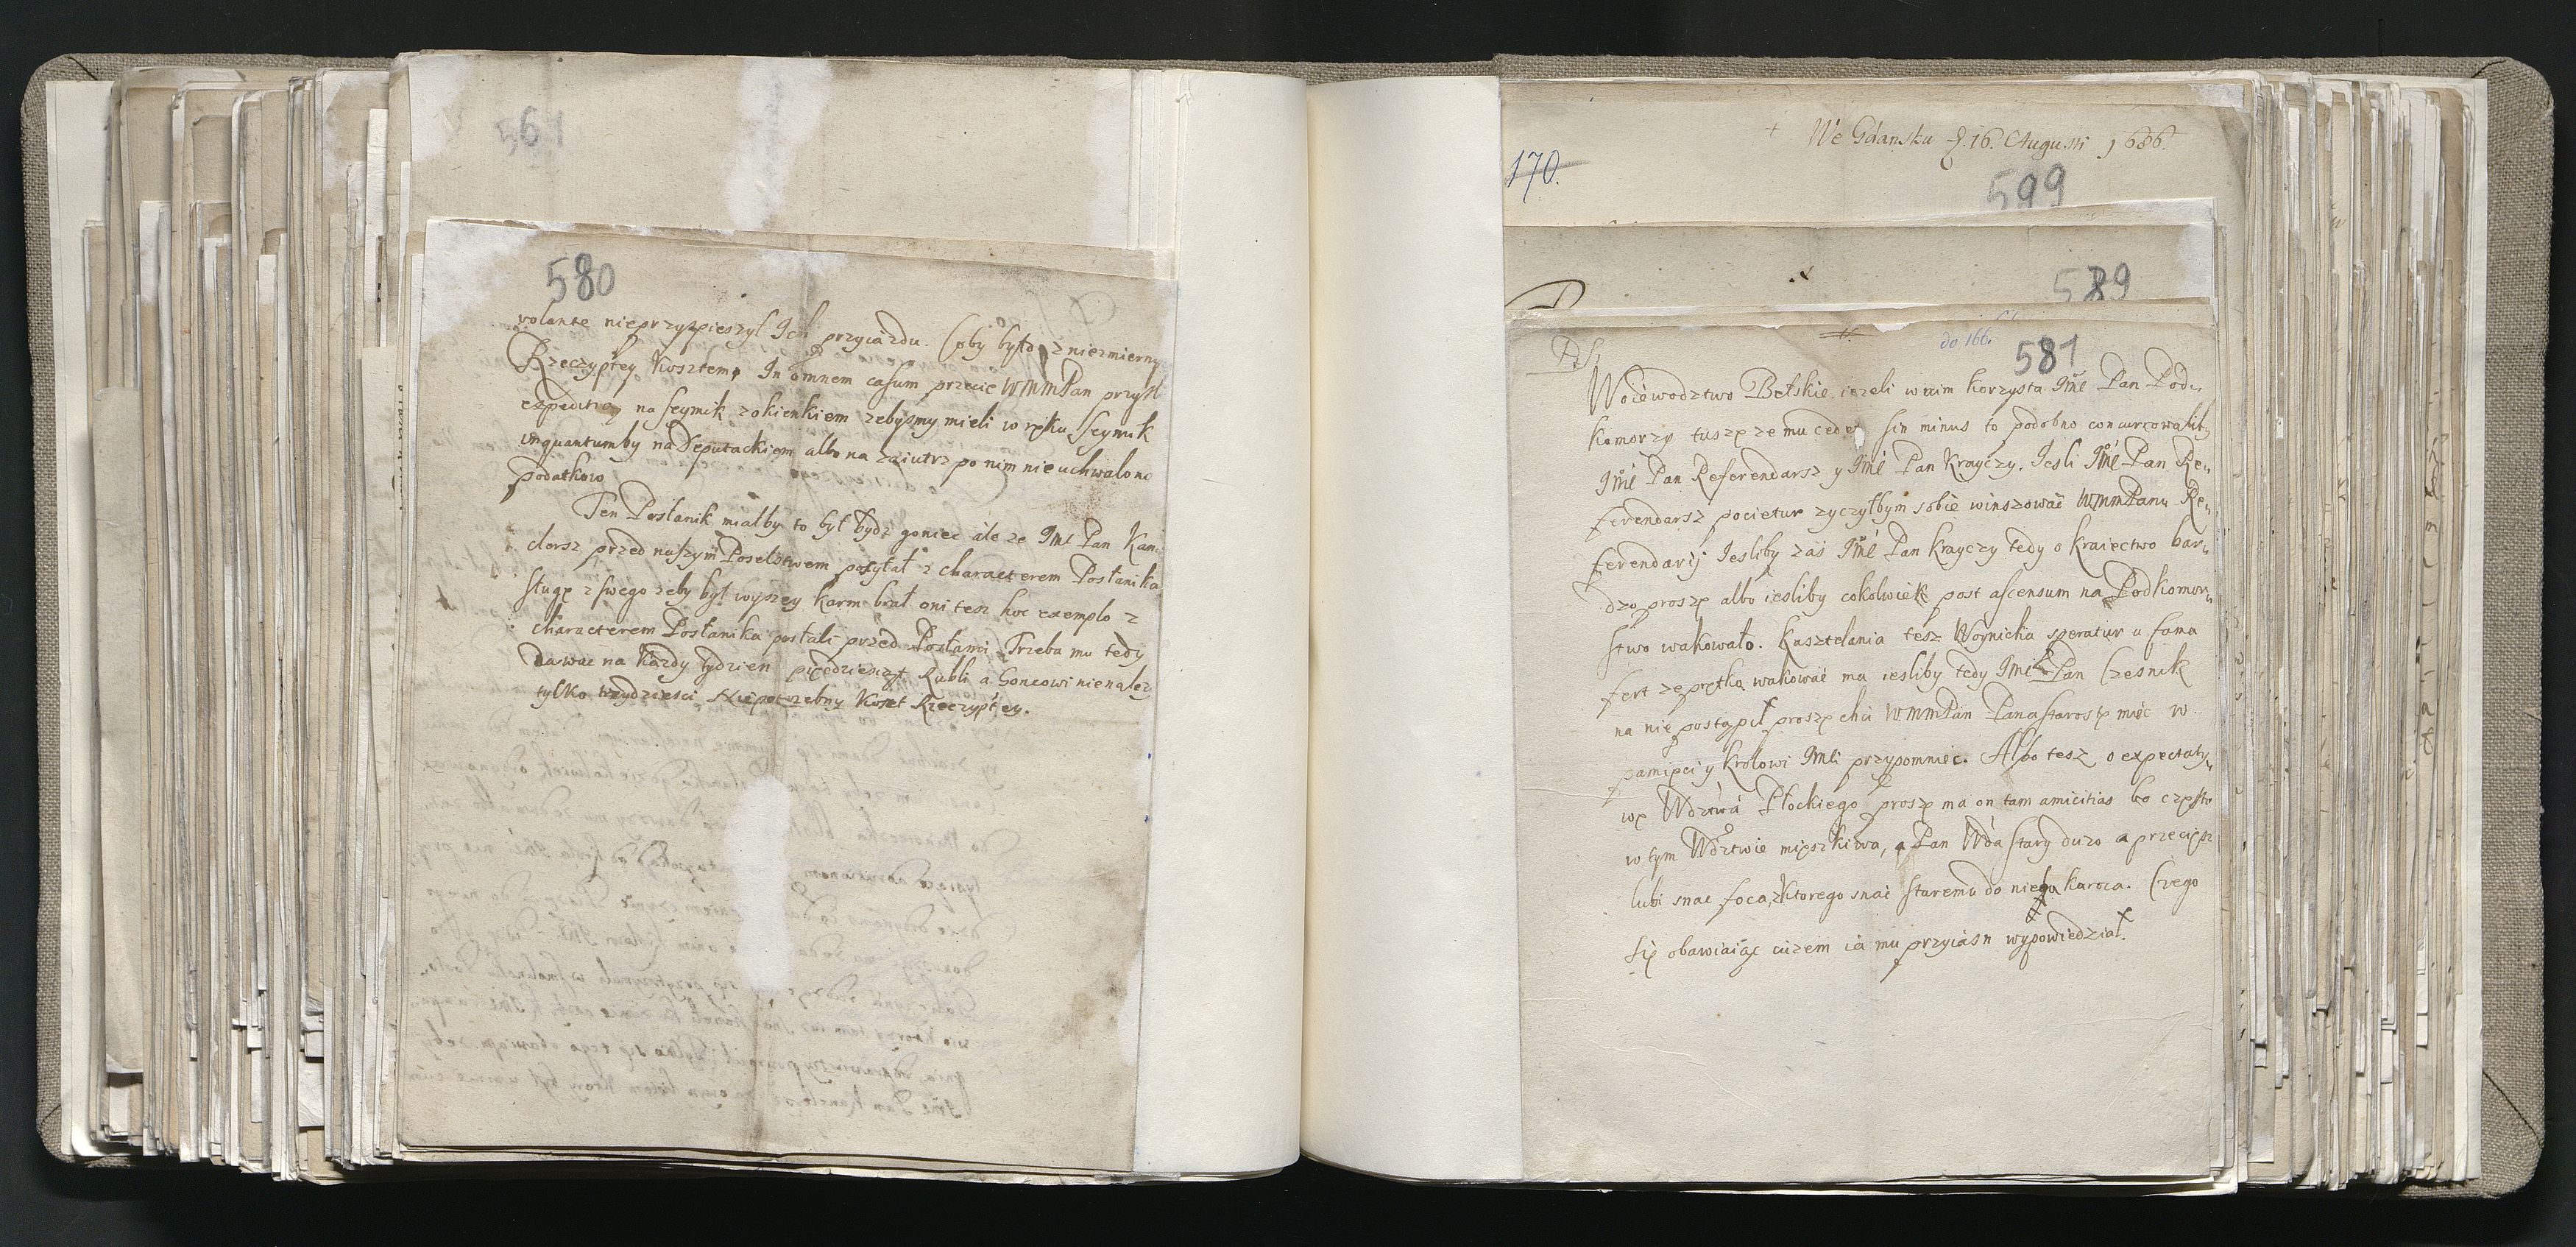 561
580
volante nieprzyspieszył Ich przyiazdu. Coby było z niezmiernym
Rzeczyptey kosztem, In omnem casum przecie WMMPan przysli
expeditią na seymik z okienkiem zebysmy mieli w ręku. Seymik
inquantumby na Deputackiem albo na zaiutrz po nim nie uchwalono
podatkow
Ten Posłanik miałby to był bydz goniec ale ze Jmć Pan Kan
clersz przed naszym Poselstwem posyłał z characterem Posłanika
sługę z swego zeby był wyszey karm brał oni tesz hoc exemplo z
characterem Posłanika posłali przed Posłami. Trzeba mu tedy
dawac na kazdy tydzien pięcdziesiąt Rubli a Goncowi nienalezy
tylko trzydziesci Niepotrzebny koszt Rzeczyptey.
170.
We Gdansku d. 16. Augusti 1686.
599
589
do 166.
581
P.S.
Woiewodztwo Bełskie iezeli w nim korzysta Jmć Pan Pod„
komorzy tuszę ze mu cedet sin minus to podobno concurrowaliby
Jmć Pan Referendarsz y Jmć Pan Krayczy. Iesli Jmć Pan Re„
ferendarsz pocietur zyczyłbym sobie winszować WMMPanu Re„
ferendarij Iesliby zaś Jmć Pan Krayczy tedy o kraiectwo bar„
dzo proszę albo iesliby cokolwiek post ascensum na Podkomor„
stwo wakowało. Kasztelania tesz Woynicka speratur u fama
fert ze prętko wakować ma iesliby tedy Jmć Pan Czesnik
na nię postąpił proszę chci WMMPan Pana starostę mieć w
pamięci y Krolowi Jmci przypomniec. Albo tesz o expectaty„
wę Wdztwa Płockiego proszę ma on tam amicitias bo często
w tym Wdztwie mieszkiwa, a Pan Wda stary duzo a przeciesz
lubi snac foca, z ktorego snać staremu do niego karoca. Czego
się obawiaiąc iuzem ia mu przyiasn wypowiedział.